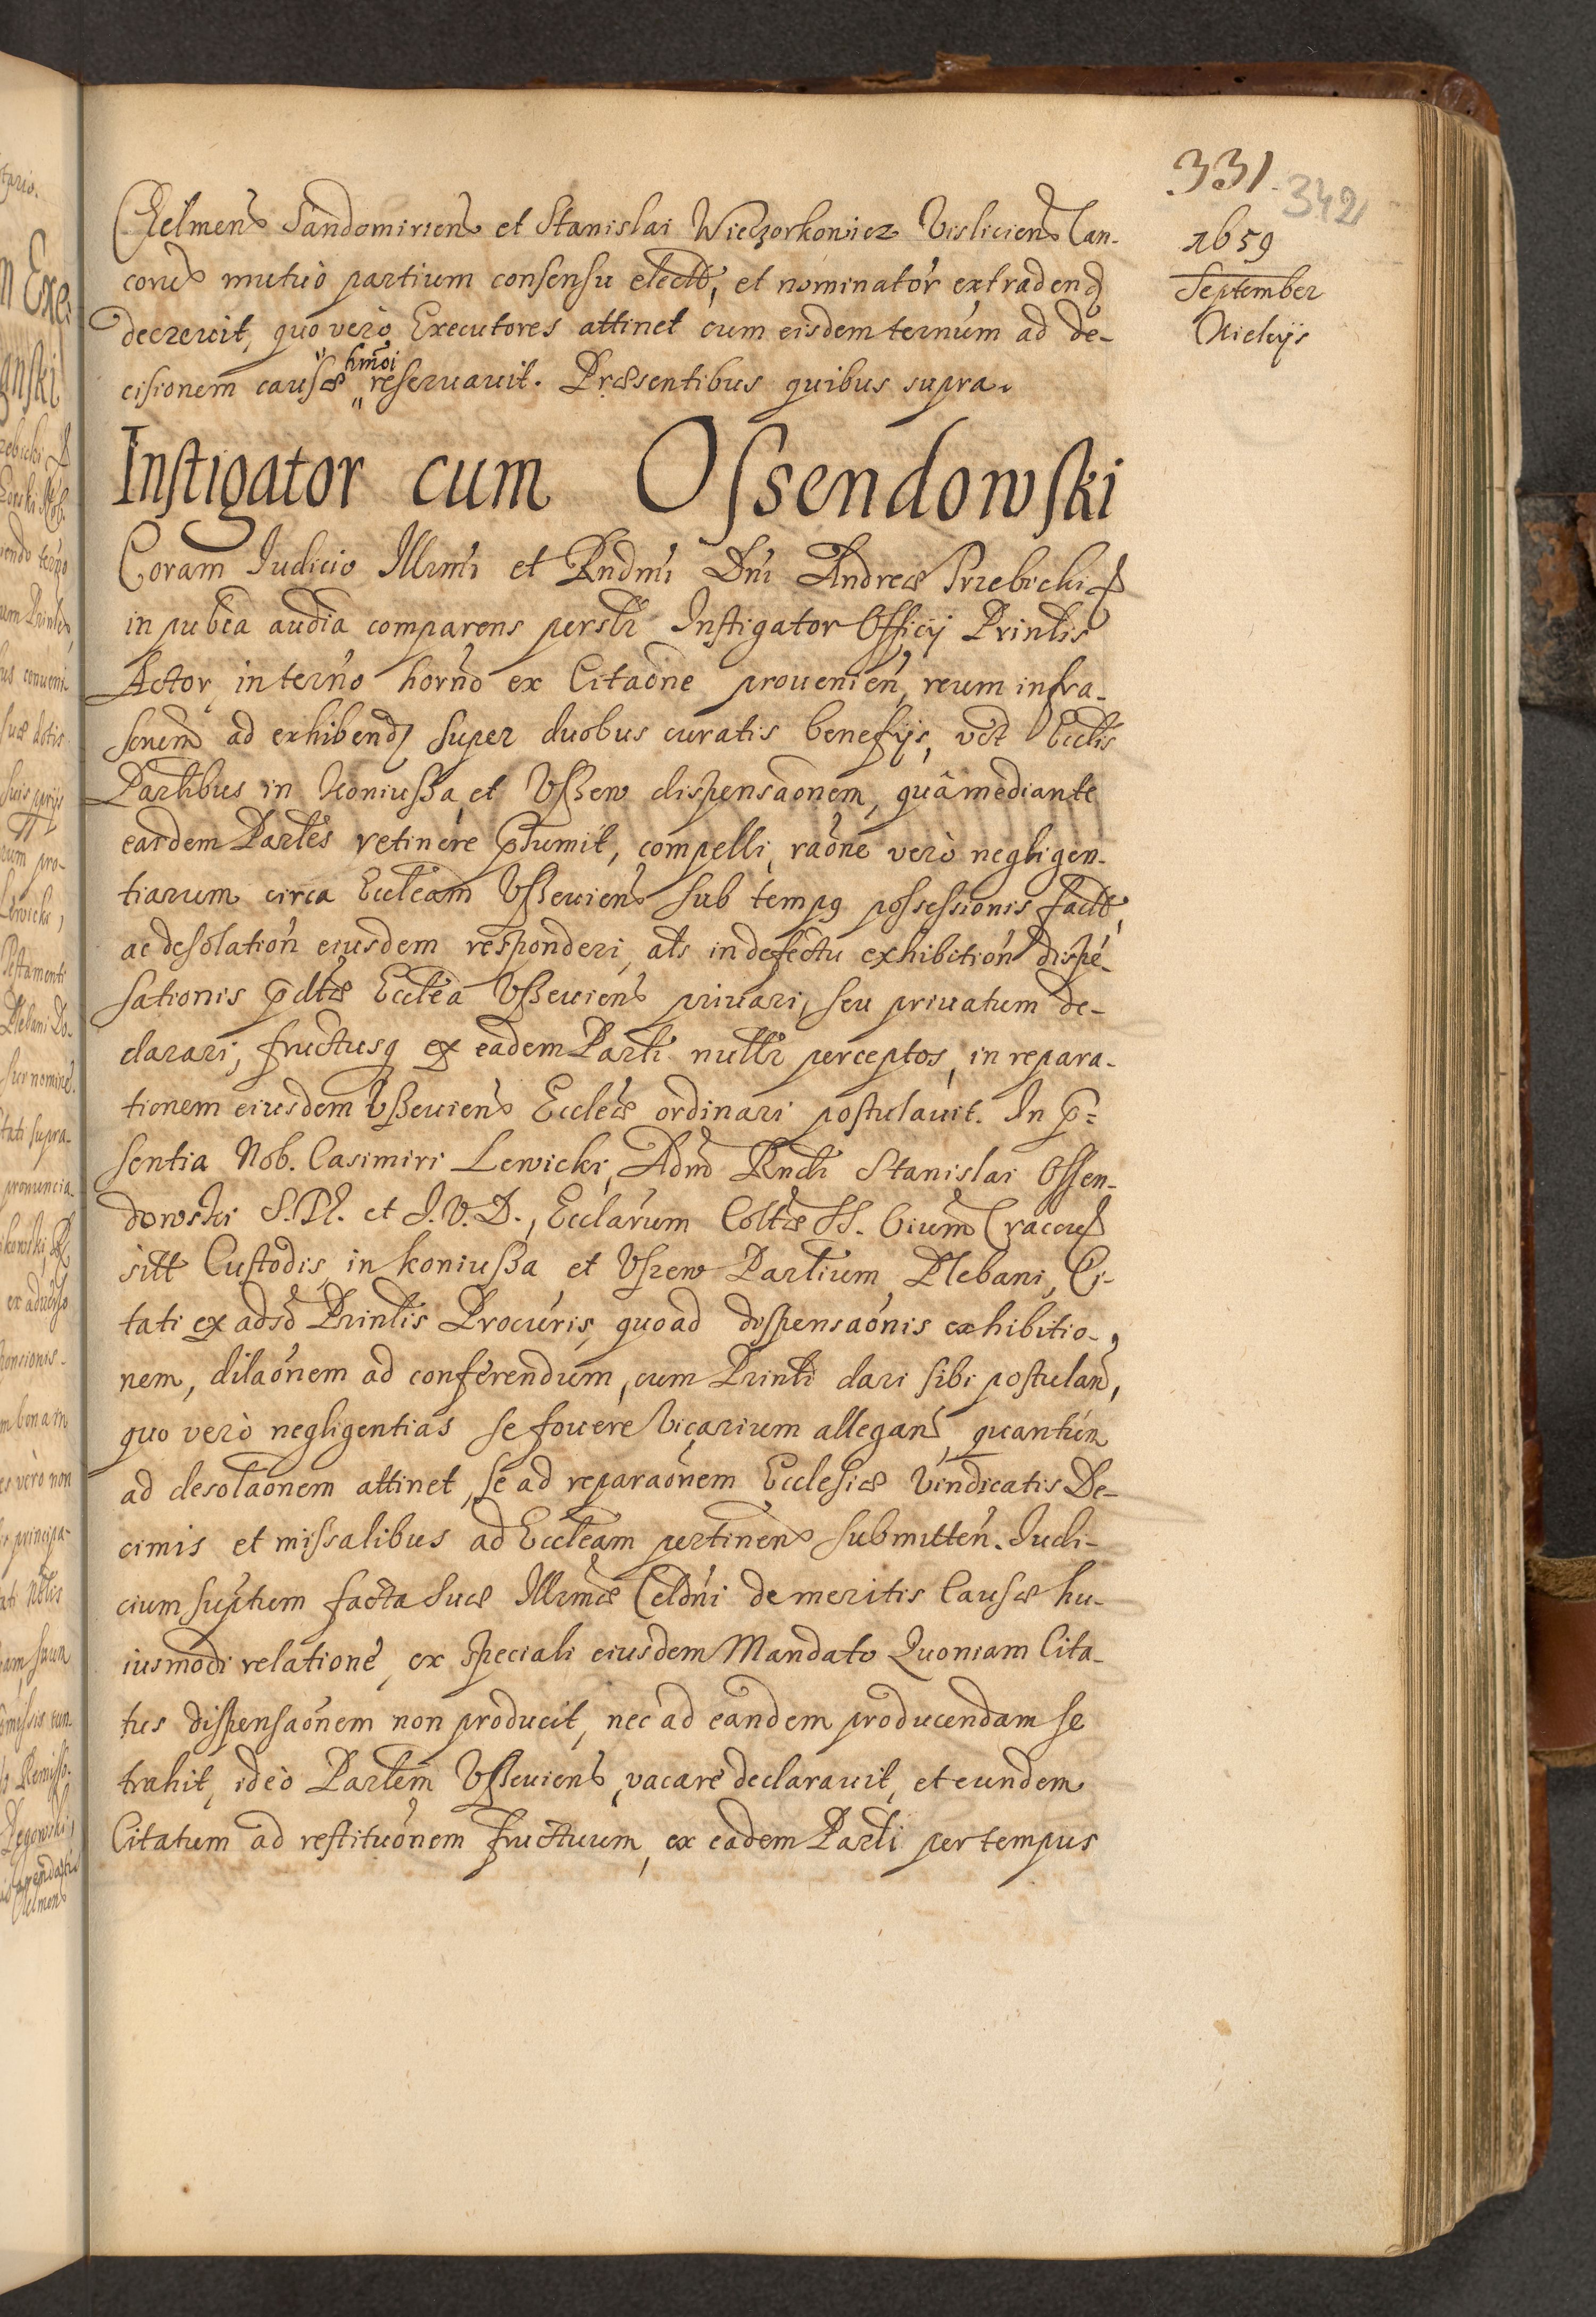 331. 342
1659
September
Kielcijs
Chelmens Sandomiriens et Stanislai Wieczorkowicz Visliciens Can-
conus mutuò partium consensu elect, et nominator extradend
decrevit, quo verò Executores attinet cum eisdem ternum ad de-
cisionem causæ hmoi reservavit. Præsentibus quibus supra.
Instigator cum Ossendowski
Coram Iudicio Illrmi et Rndmi Dni Andreæ Trzebicki
in pubca audia comparens perslr Instigator Officij Prinlis
Actor in terno horno ex Citaone provenien, reum infra-
scrum ad exhibend super duobus curatis benefijs, vdt Ecclis
Parlibus in Koniussa et Vszew dispensaonem, quâ mediante
easdem Parles retinere psumit, compelli, raone verò negligen-
tiarum circa Eccleam Vszeviens sub tempq possessionis fact,
ac desolation eiusdem responderi, als in defectu exhibition dispe-
sationis pdtæ Ecclea Vszeviens privari, seu privatum de-
clarari, fructusq ex eadem Parli nullr perceptos, in repara-
tionem eiusdem Vszeviens Eccleæ ordinari postulavit. In p=
sentia Nob. Casimiri Lewicki, Admd Rndi Stanislai Ossen-
dowski S.Pl. et I.V.D., Ecclarum Coltæ SS. Oium Cracov
sitt Custodis, in Koniussa et Vszew Parlium Plebani, Ci-
tati ex adso Prinlis Procuris, quoad dispensaonis exhibitio-
nem, dilaonem ad conferendum, cum Prinli dari sibi postulan,
quo verò negligentias se fovere Vicarium allegan, quantum
ad desolaonem attinet, se ad reparaonem Ecclesiæ vindicatis De-
cimis et missalibus ad Eccleam pertinens submitten. Iudi-
cium suptum facta suæ Illrmæ Celdni de meritis causæ hu-
iusmodi relatione, ex speciali eiusdem Mandato Quoniam Cita-
tus dispensaonem non producit, nec ad eandem producendam se
trahit, ideò Parlem Vszeviens vacare declaravit, et eundem
Citatum ad restituonem fructuum, ex eadem Parli per tempus